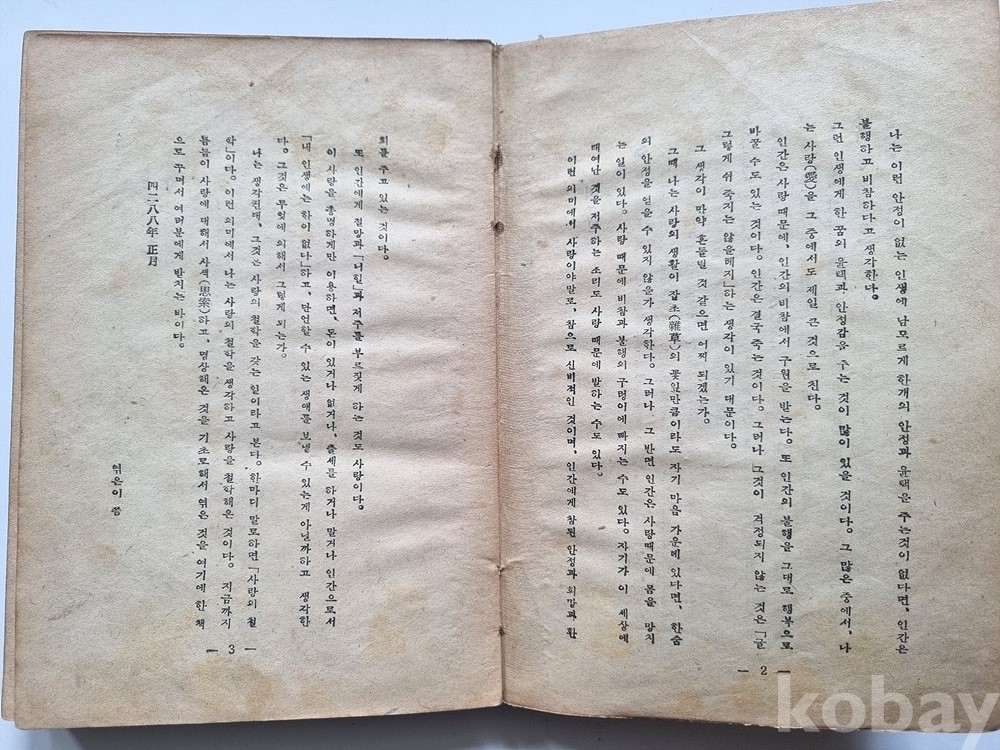 나는 이런 안정이 없는 인생에 남모르게 한개의 안정과 윤택을 주는것이 없다면, 인간은
불행하고 비참하다고 생각한다.
그런 인생에게 한 꿈의 윤택과 안정감을 주는 것이 많이 있을 것이다. 그 많은 중에서, 나
는 사랑(愛)을 그 중에서도 제일 큰 것으로 친다.
인간은 사랑 때문에, 인간의 비참에서 구원을 받는다. 또 인간의 불행을 그대로 행복으로
바꿀 수도 있는 것이다. 인간은 결국 죽는 것이다. 그러나 「그것이 걱정되지 않는 것은 「글
그렇게 쉬 죽지는 않을 테지」하는 생각이 있기 때문이다.
그 생각이 만약 흔들릴 것 같으면 어찌 되겠는가.
그때, 나는 사랑의 생활이 잡초(雜草)의 꽃잎만큼이라도 자기 마음 가운데 있다면, 한숨
의 안정을 얻을 수 있지 않을가 생각한다. 그러나 그 반면 인간은 사랑때문에 몸을 망치
는 일이 있다. 사랑 때문에 비참과 불행의 구렁이에 빠지는 수도 있다. 자기가 이 세상에
태여난 것을 저주하는 소리도 사랑 때문에 발하는 수도 있다.
이런 의미에서 사랑이야말로, 참으로 신비적인 것이며, 인간에게 참된 안정과 희망과 환
— 2 —
희를 주고 있는 것이다.
또 인간에게 절망과 「니힐」과 저주를 부르짖게 하는 것도 사랑이다.
이 사랑을 총명하게만 이용하면, 돈이 있거나 없거나, 출세를 하거나 말거나 인간으로서
「내 인생에는 한이 없다」하고, 단언할 수 있는 생애를 보낼 수 있는게 아닐까하고 생각한
다. 그것은 무엇에 의해서 그렇게 되는가.
나는 생각컨대, 그것은 사랑의 철학을 갖는 일이라고 본다. 한마디 말로하면 「사랑의 철
학」이다. 이런 의미에서 나는 사랑의 철학을 생각하고 사랑을 철학해온 것이다. 지금까지
틈틈이 사랑에 대해서 사색(思索)하고, 명상해온 것을 기초로해서 엮은 것을 여기에 한 책
으로 꾸며서 여러분에게 받치는 바이다.
四二八八年 正月
엮은이 씀
— 3 —
kobay